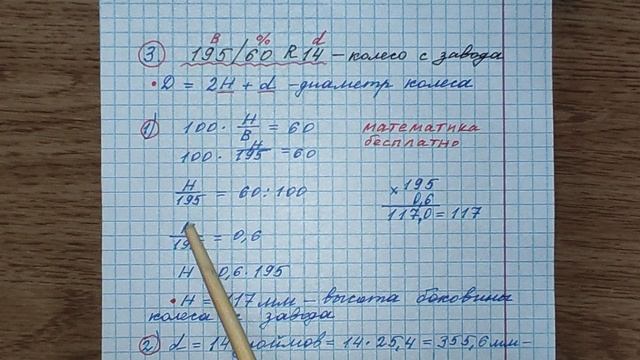 B % d
3) 195/60 R14 – колесо с завода
• D = 2H + d – диаметр колеса
1) 100 · H/B = 60
математика
бесплатно
100 · H/195 = 60
H/195 = 60 : 100
× 195
0,6
117,0 = 117
= 0,6
H 0,6 · 195
• H = 117 мм – высота боковины
колеса с завода
2) d = 14 дюймов = 14 · 25,4 = 355,6 мм –